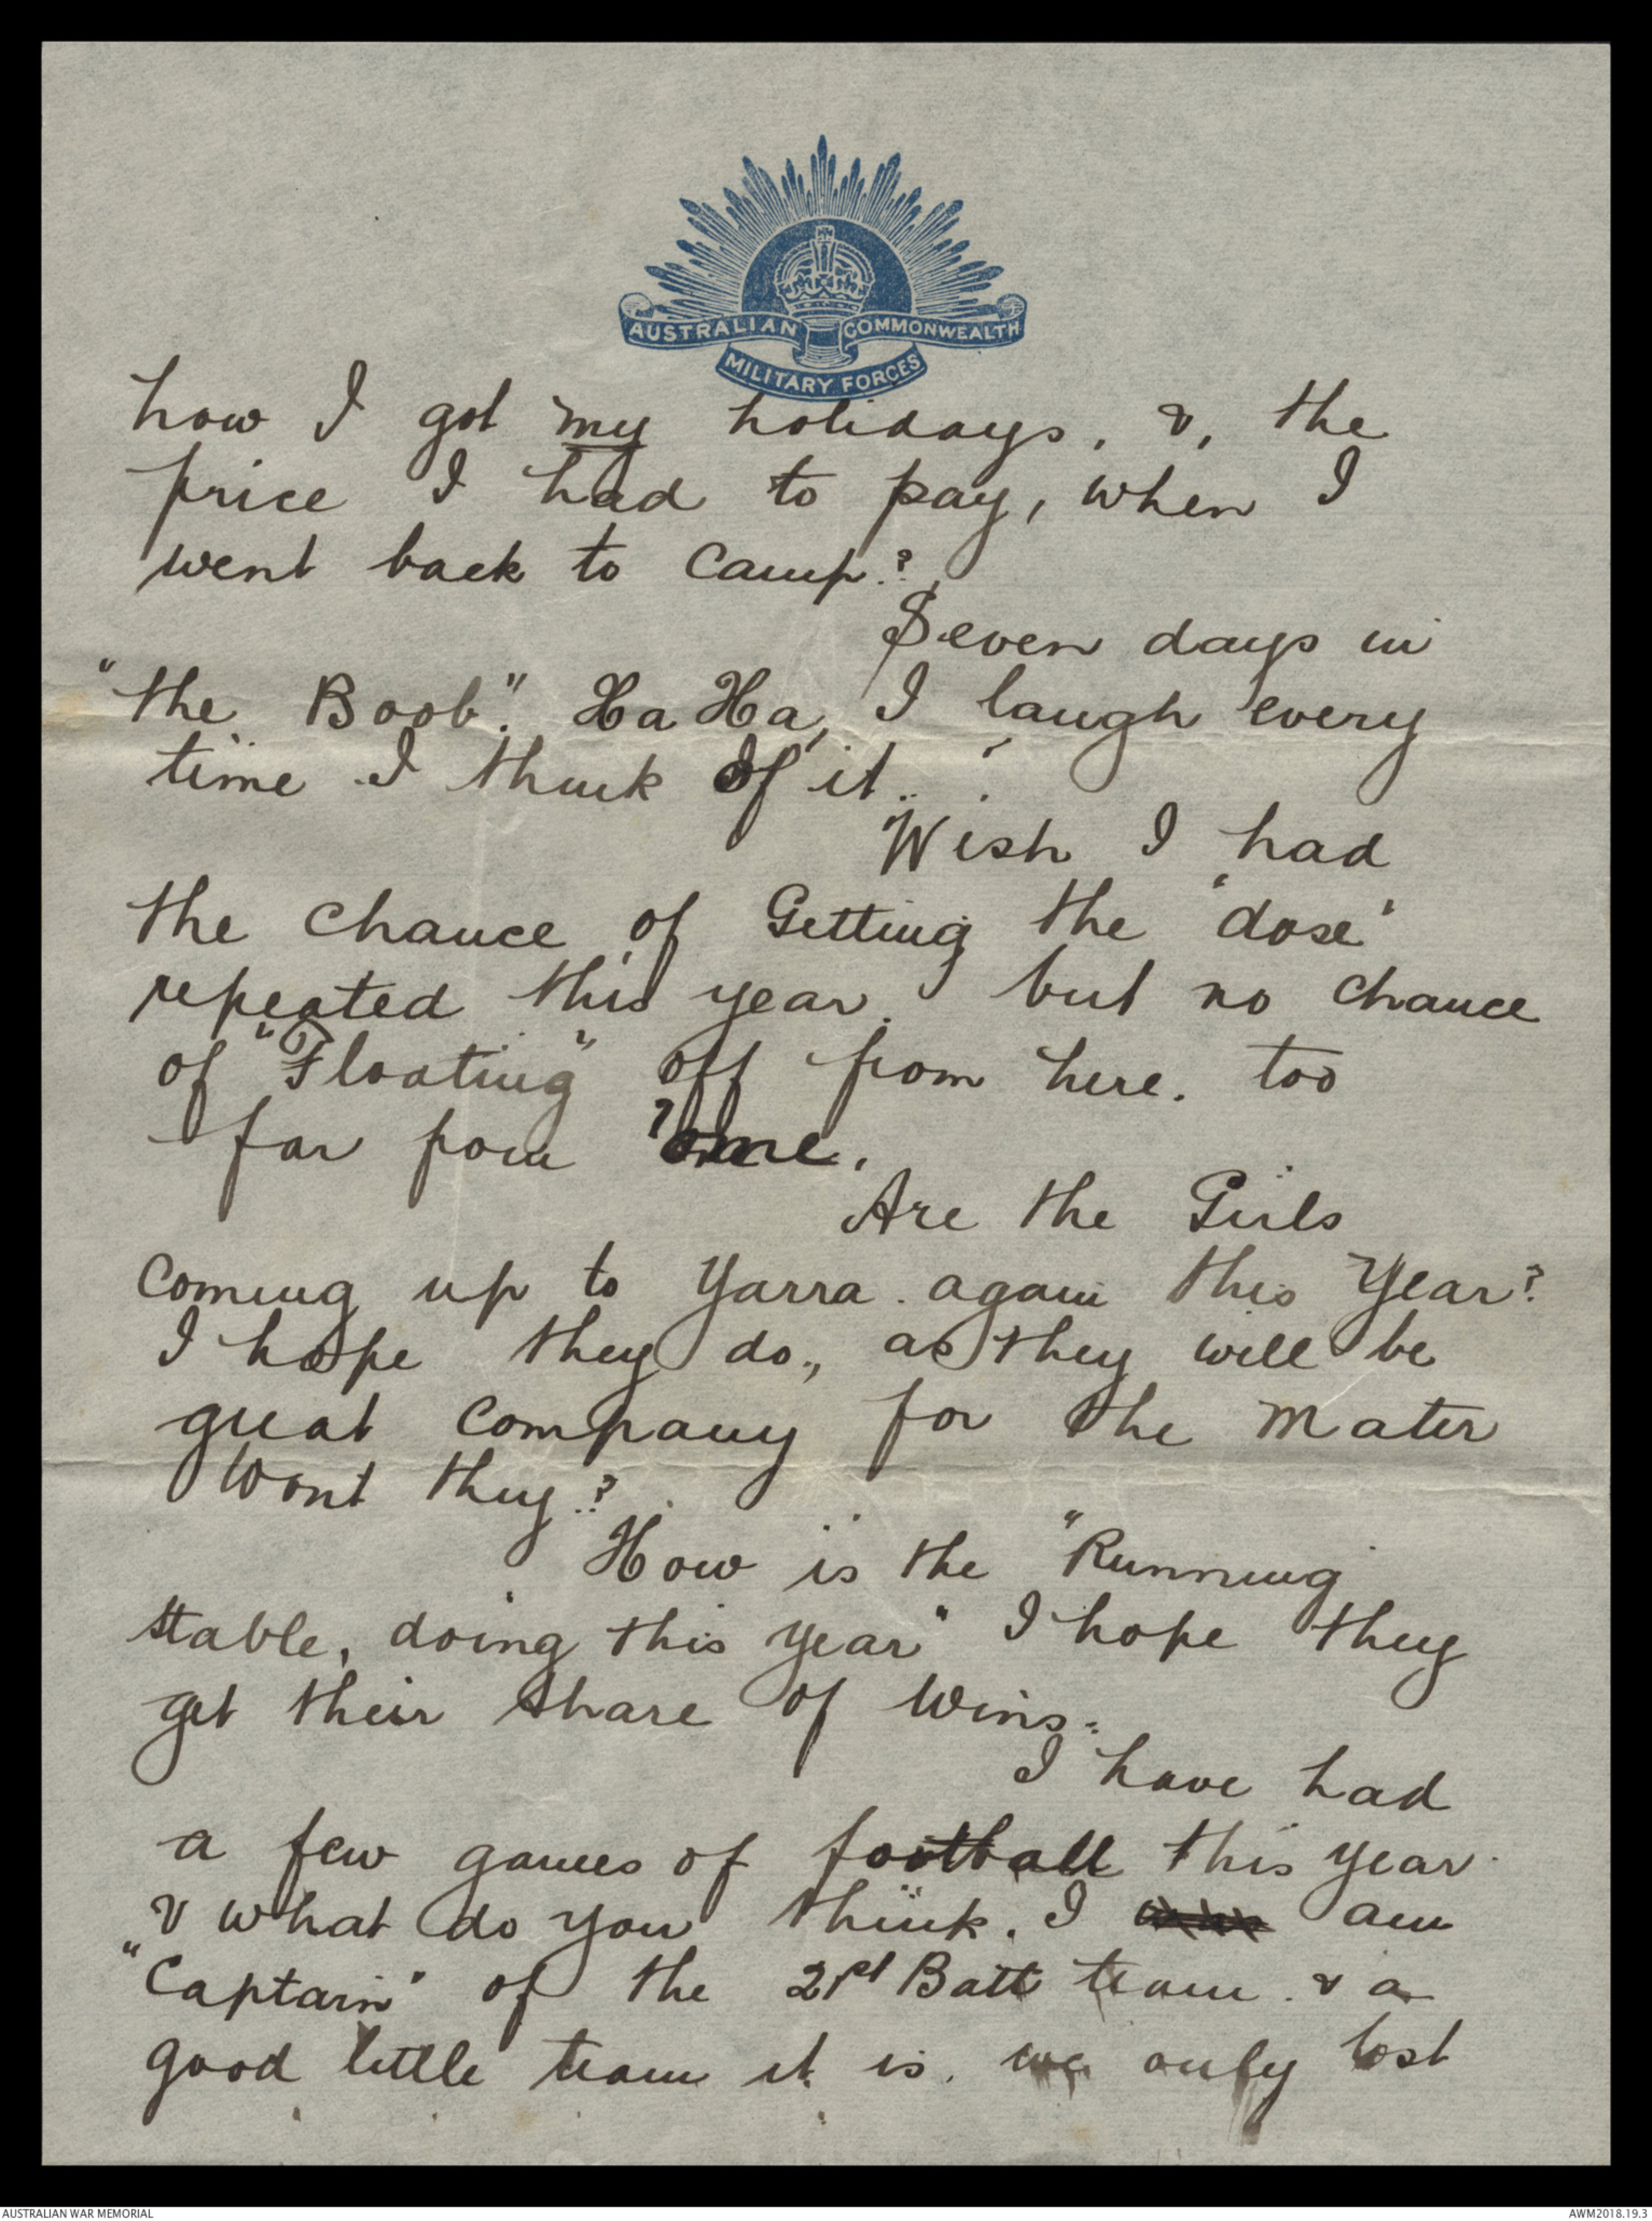 AUSTRALIAN COMMONWEALTH
MILITARY FORCES
how I got my holidays, &, the
price I had to pay, when I
went back to Camp?
Seven days in
"the Boob." Ha Ha, I laugh every
time I think of it.
Wish I had
the chance of Getting the 'dose'
repeated this year. but no chance
of "Floating" off from here. too
far from 'ome.
Are the Girls
Coming up to Yarra. again this Year?
I hope they do,, as they will be
great Company for the Mater
Wont they?
How is the "Running
stable, doing this year" I hope they
get their share of Wins.
I have had
a few games of football this year.
& what do you think. I am
"Captain" of the 21st Batt team. & a
good little team it is. we only lost
AUSTRALIAN WAR MEMORIAL
AWM2018.19.3